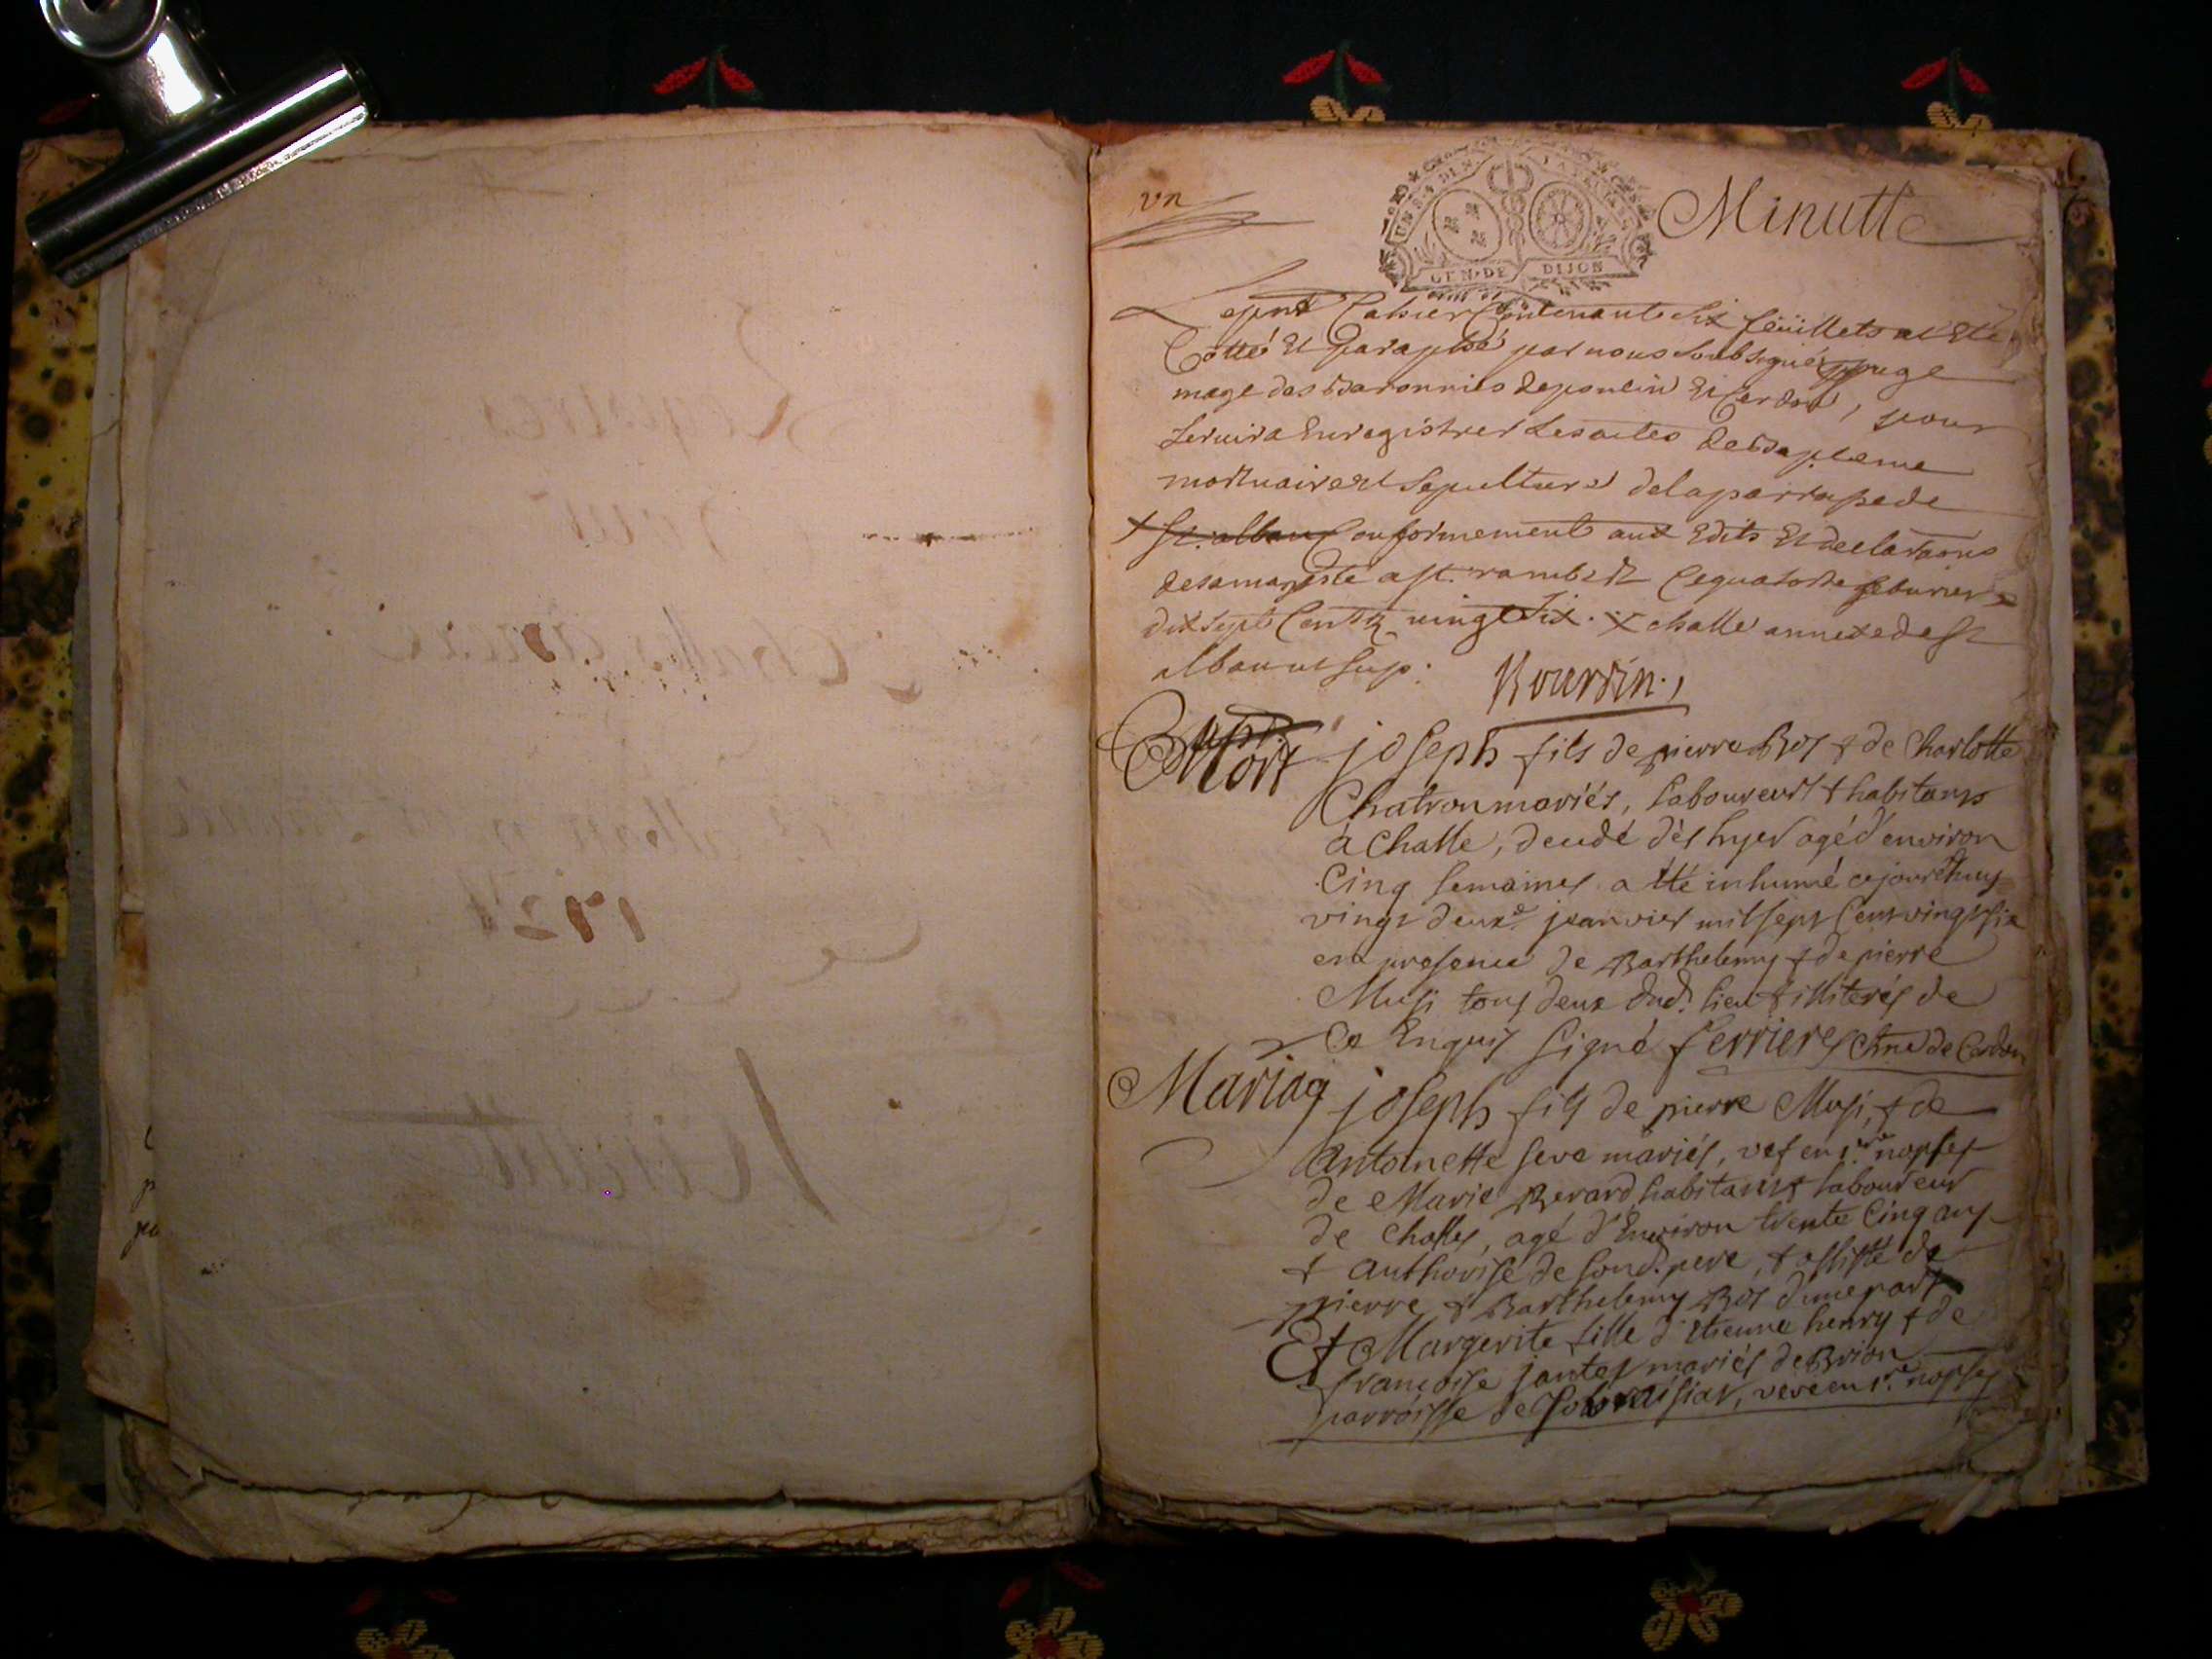 vn
UN S. 4 DEN.
GEN·DE DIJON
Minutte
Le pnt Cahier Contenant six feüillets a Eté
Cotté Et paraphé par nous soubsigné juge
mage des Baronnies de poncin Et Cerdon, pour
servir a Enregistrer les actes de Bapteme
mortuaire et sepulture de la parroisse de
+ St. alban Conformement aux Edits Et declaraons
de sa majesté a St. rambert Ce quatorze febvrier
dix sept Cents vingt six. x challe annexe de St
alban ut sup.
Bourdin.
Bapt.
Mort joseph fils de pierre Boz & de Charlotte
Chatron mariés, laboureurs & habitans
à Challe, decedé dès hyer agé d'environ
Cinq semaines a été inhumé ce jourdhuy
vingt deuxe. janvier mil sept Cent vingt six
en presence de Barthelemy & de pierre
Musi tous deux dud. lieu & illiterés de
Ce Enquis signé ferrieres de Cerdon
Mariag joseph fils de pierre Musi, & de
Antoinette seve mariés, vef en 1.re nopses
de Marie Berard habitans & laboureur
de Challes, agé d'Environ trente Cinq ans
& authorisé de sond. pere, & assisté de
pierre & Barthelemy Boz d'une part
Et Margerite fille d'Etienne henry & de
françoise jantes mariés de Brion
parroisse de, veve en 1.re nopses
Registres
pour
Challes
1726
Minutte